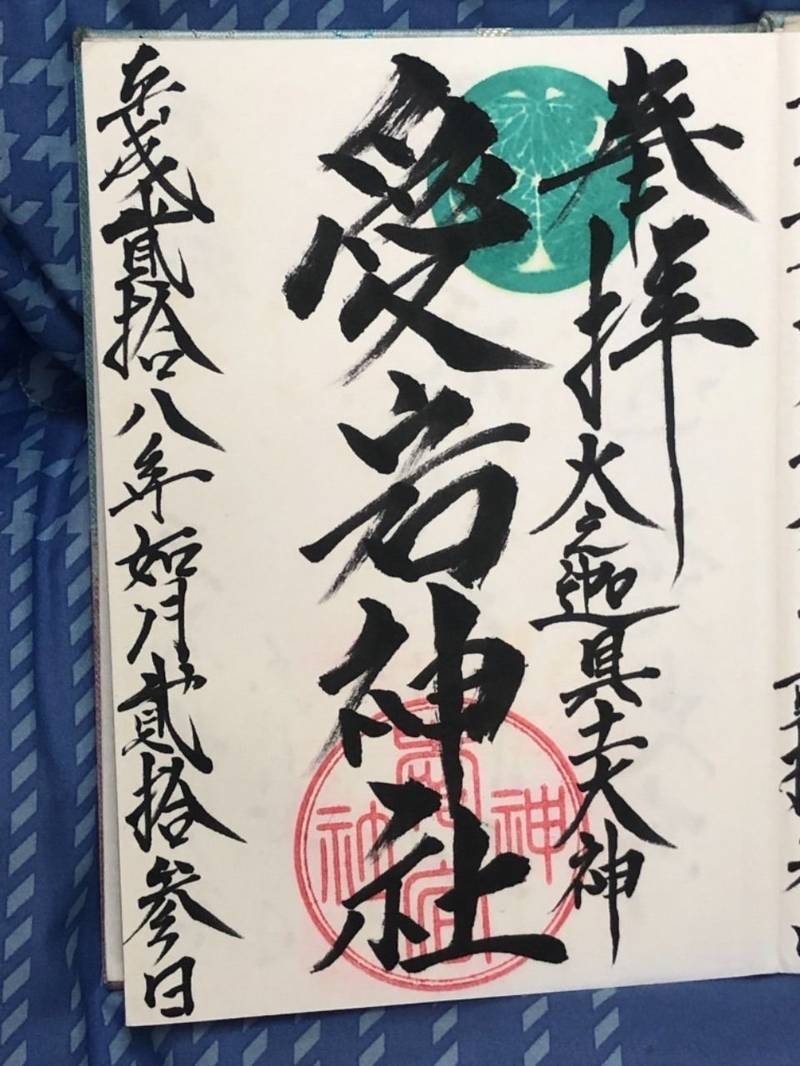 奉拝
火之迦具土大神
愛宕神社
愛宕神社
平成貳拾八年如月貳拾参日